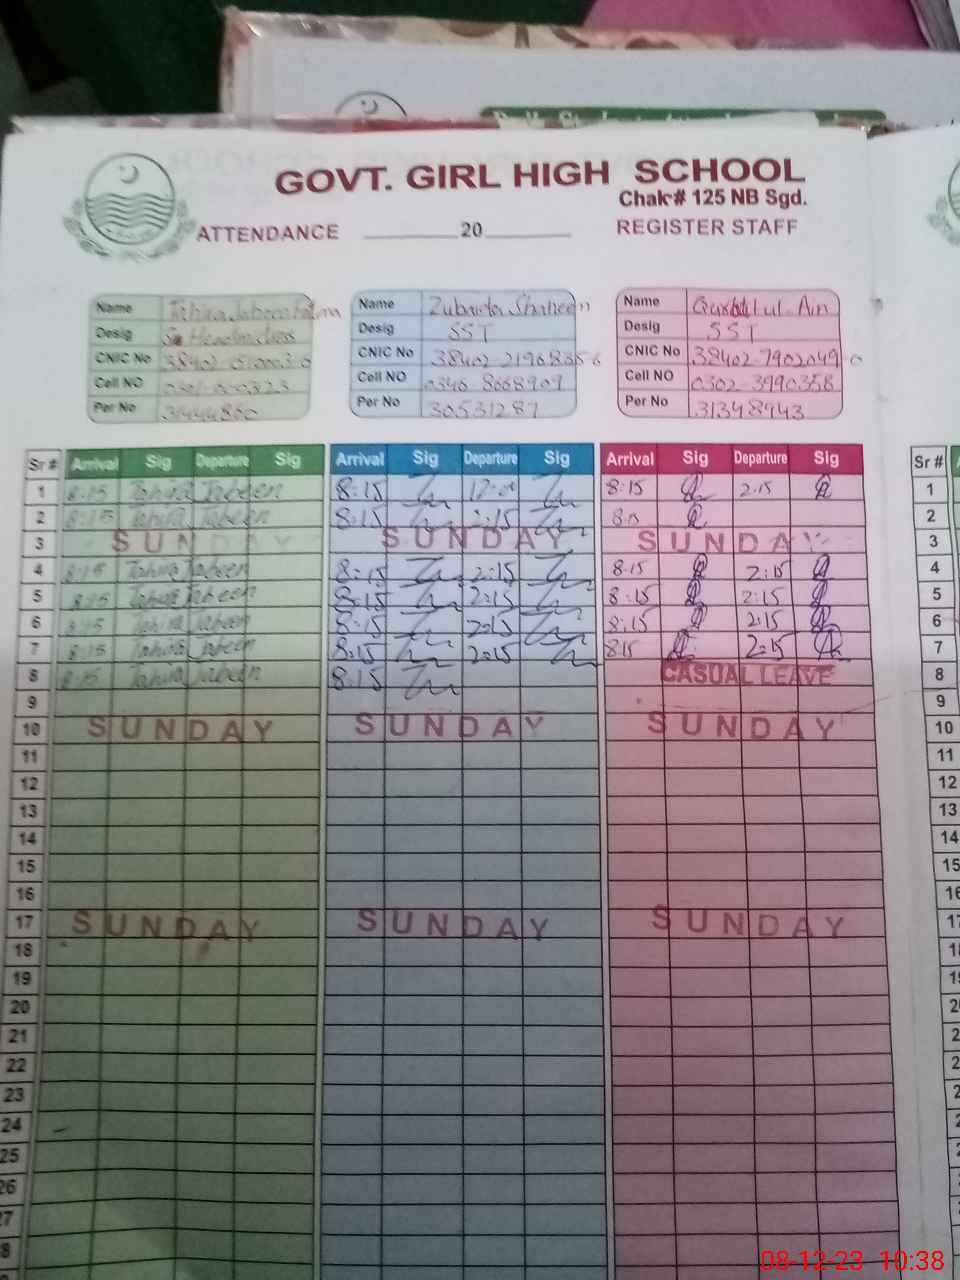 GOVT. GIRL HIGH SCHOOL
Chak # 125 NB Sgd.
ATTENDANCE ________ 20 ________ REGISTER STAFF
Name Tahira Jabeen Name Zubaida Shaheen Name Ain
Desig Sr Headmistress Desig SST Desig SST
CNIC No CNIC No CNIC No
Cell NO Cell NO Cell NO 0302-3990358
Per No Per No 30531287 Per No 31348943
Sr # Arrival Sig Departure Sig Arrival Sig Departure Sig Arrival Sig Departure Sig Sr #
1 8:15 Tahira Jabeen 8:15 8:15 2:15 1
2 8:15 Tahira Jabeen 8:15 2:15 8:15 2
3 SUNDAY SUNDAY SUNDAY 3
4 8:15 Tahira Jabeen 8:15 2:15 8:15 2:15 4
5 8:15 Tahira Jabeen 8:15 2:15 8:15 2:15 5
6 8:15 Tahira Jabeen 8:15 2:15 8:15 2:15 6
7 8:15 Tahira Jabeen 8:15 2:15 815 2:15 7
8 8:15 Tahira Jabeen 8:15 CASUAL LEAVE 8
9 9
10 SUNDAY SUNDAY SUNDAY 10
11 11
12 12
13 13
14 14
15 15
16 16
17 SUNDAY SUNDAY SUNDAY 17
18
19
20
21
22
23
24
25
26
08-12-23 10:38